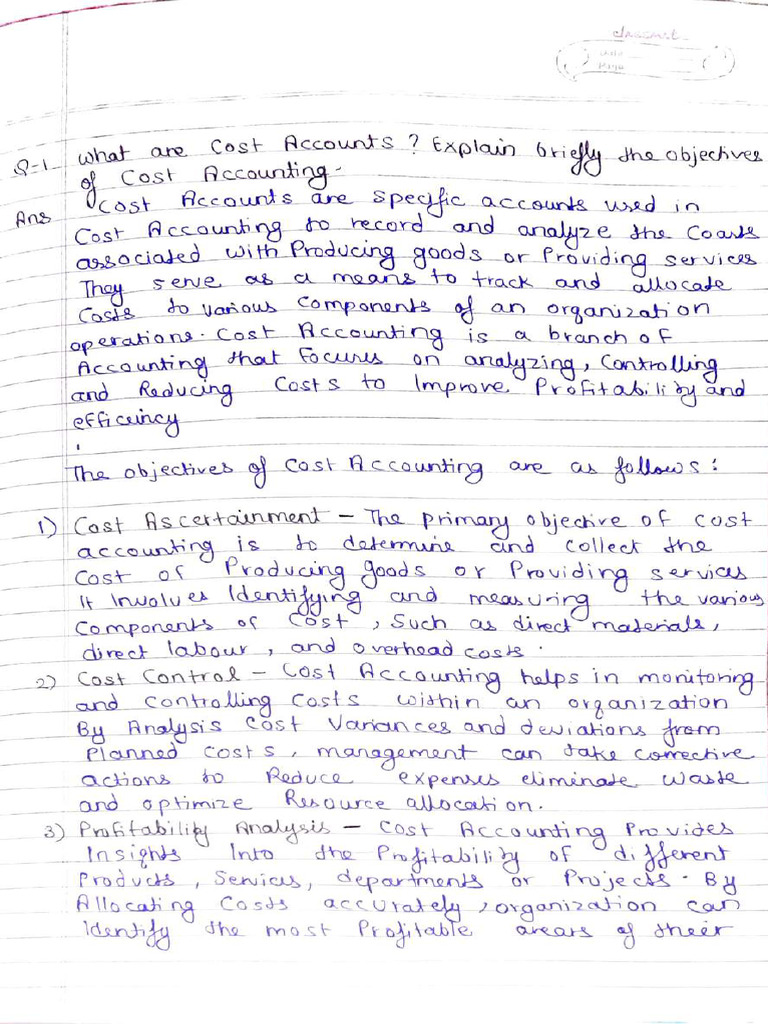 classmate
Date
Page
Q-1 What are Cost Accounts ? Explain briefly the objectives
of Cost Accounting-
Ans Cost Accounts are specific accounts used in
Cost Accounting to record and analyze the Coasts
associated with Producing goods or Providing services
They serve as a means to track and allocate
Costs to various components of an organization
operations. Cost Accounting is a branch of
Accounting that Focuses on analyzing, Controlling
and Reducing Costs to Improve Profitability and
efficiency
The objectives of Cost Accounting are as follows:
1) Cost Ascertainment – The primary objective of cost
accounting is to determine and collect the
Cost of Producing goods or Providing services
It Involves Identifying and measuring the various
Components of Cost , Such as direct materials,
direct labour , and overhead costs .
2) Cost Control – Cost Accounting helps in monitoring
and controlling Costs within an organization
By Analysis Cost Variances and deviations from
Planned costs, management can take corrective
actions to Reduce expenses eliminate waste
and optimize Resource allocation.
3) Profitability Analysis – Cost Accounting Provides
Insights Into the Profitability of different
Products , Services, departments or Projects. By
Allocating Costs accurately , organization can
Identify the most Profitable arears of their